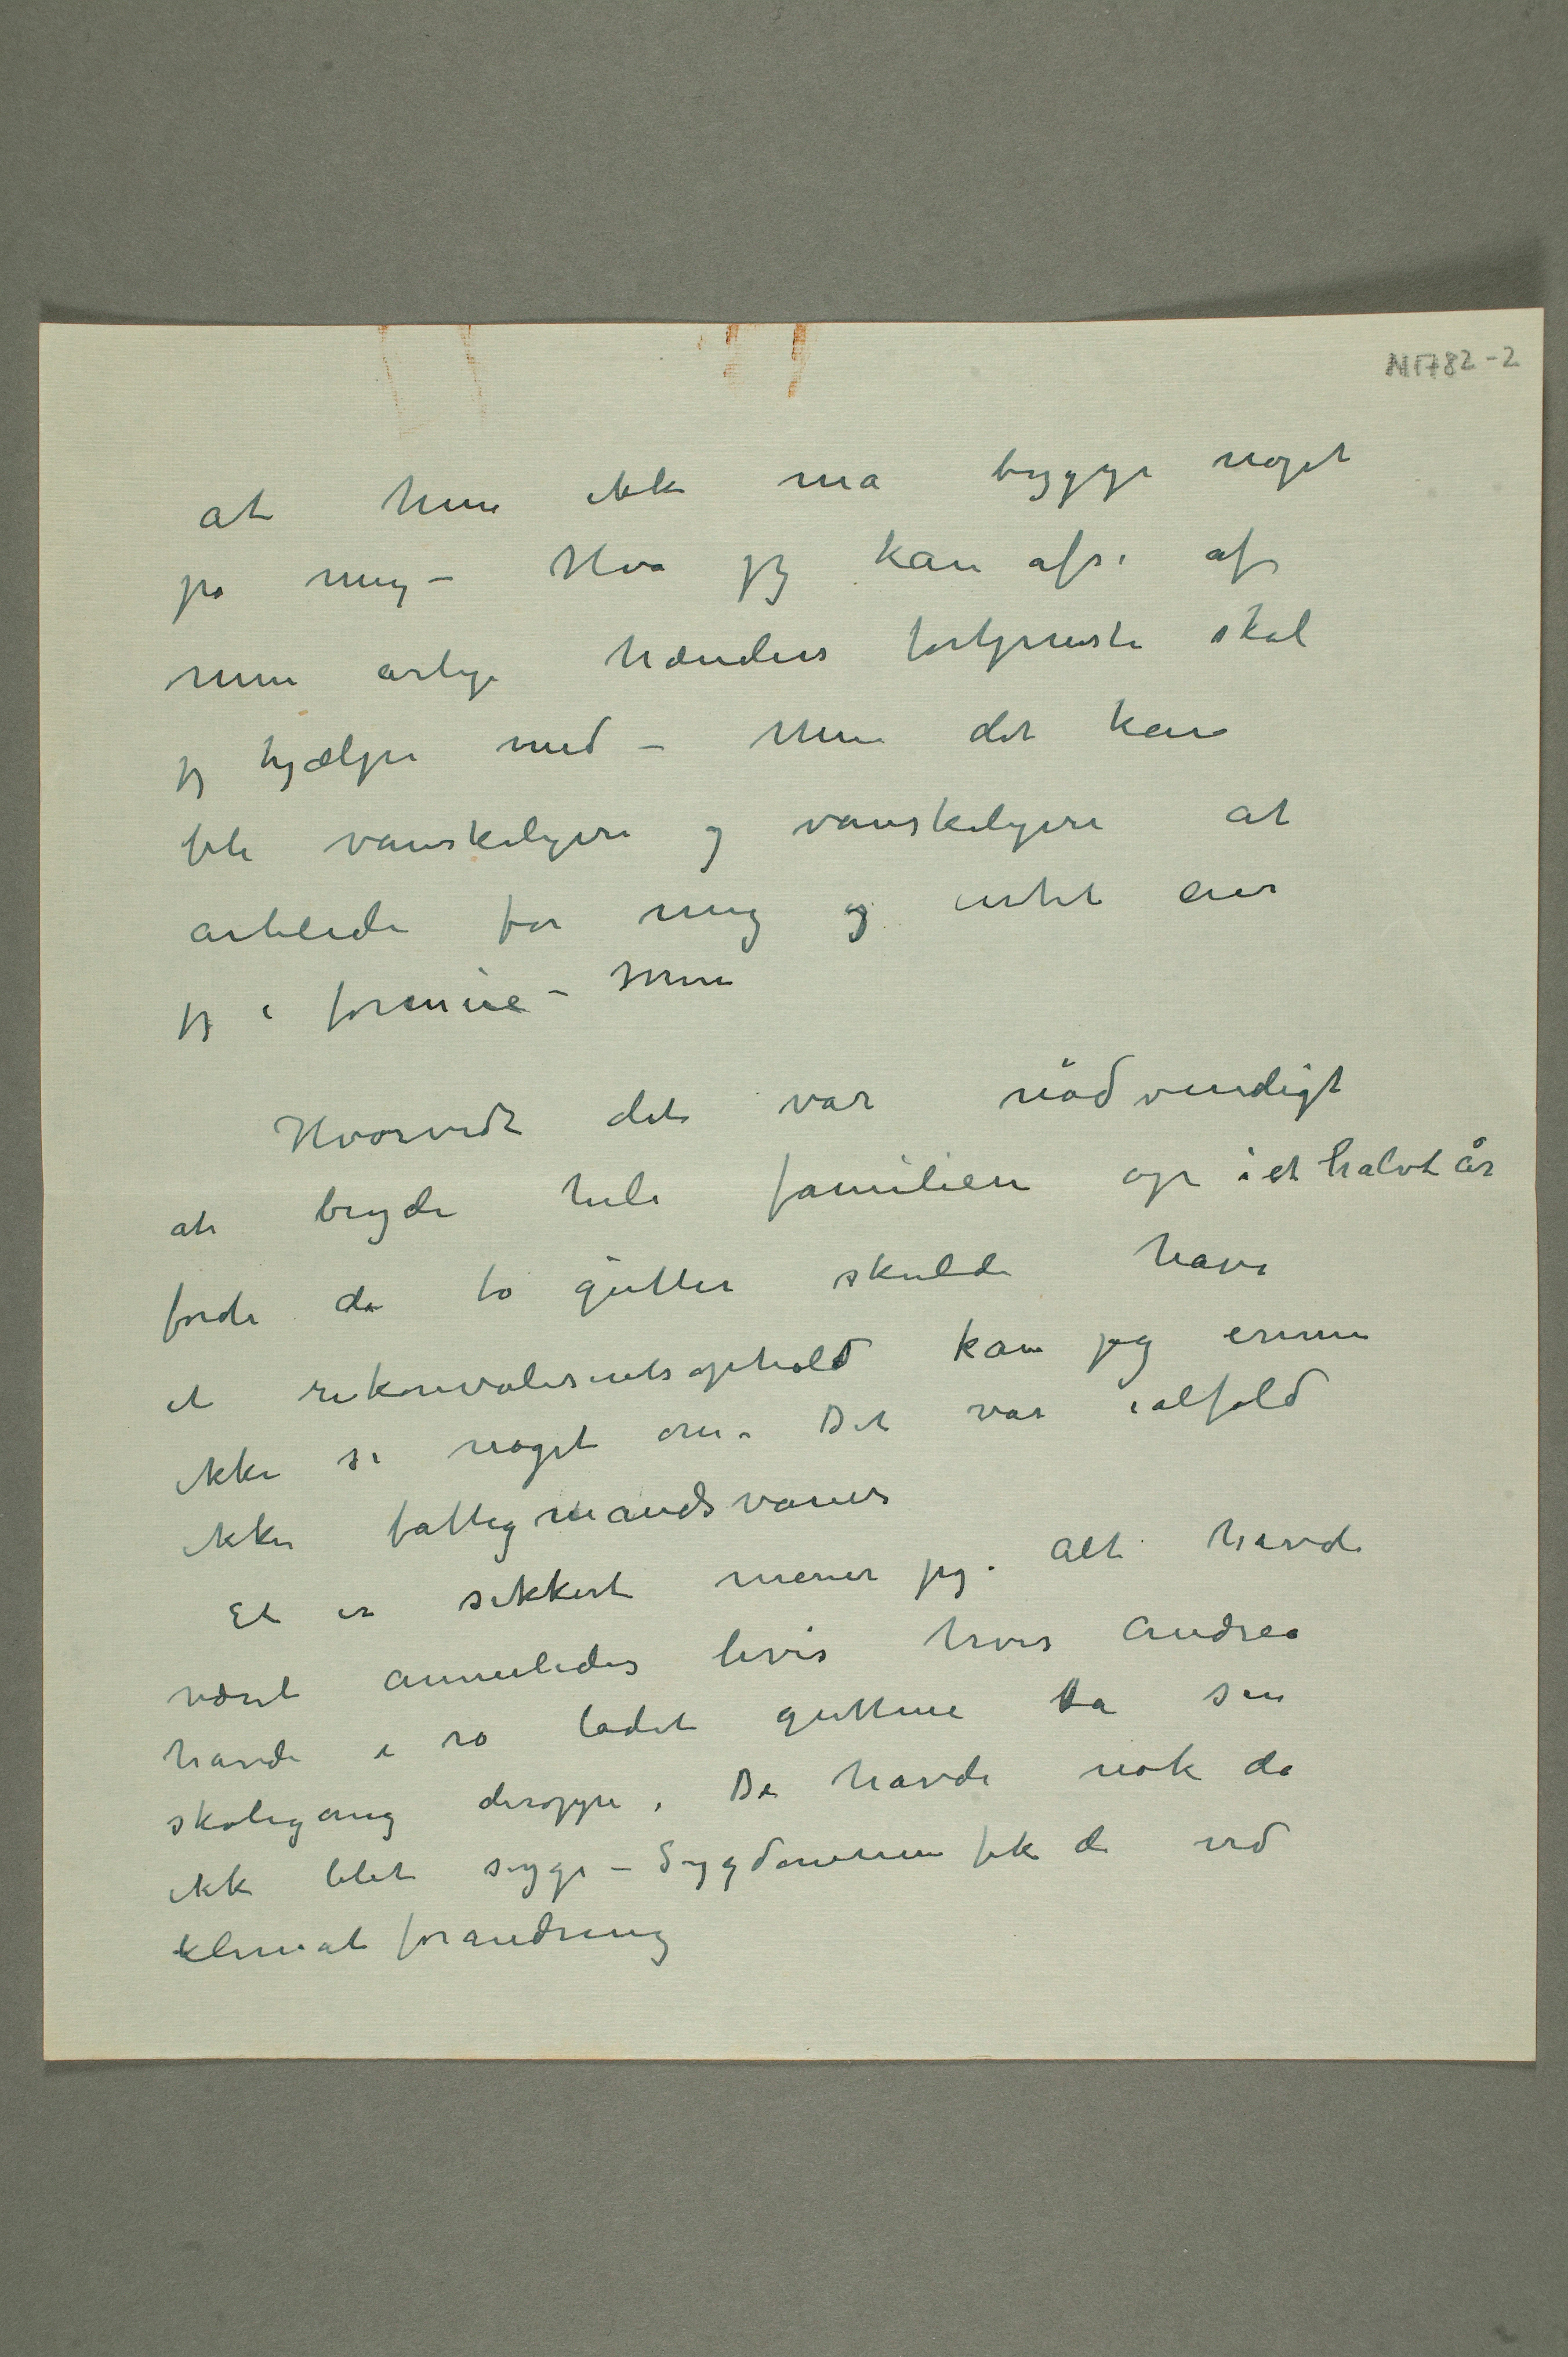 N1782-2
at hun ikke må bygge noget
på mig – Hva jeg kan afse af
mine ærlige hænders fortjeneste skal
jeg hjælpe med – Men det kan
bli vanskeligere og vanskeligere at
arbeide for mig og intet eier
jeg i formue –
Hvorvidt det var nödvendigt
at bryde hele familien op i et halvt år
fordi de to gutter skulde have
et rekonvalesentsophold kan jeg ennu
ikke si noget om. Det var ialfald
ikke fattigmandsvaner
Et er sikkert mener jeg. Alt havde
været anneledes hvis hvis Andrea
havde i ro ladet guttene ta sin
skolegang deroppe. De havde nok da
ikke blet syge – Sygdommen fik de ved
klimatforandring